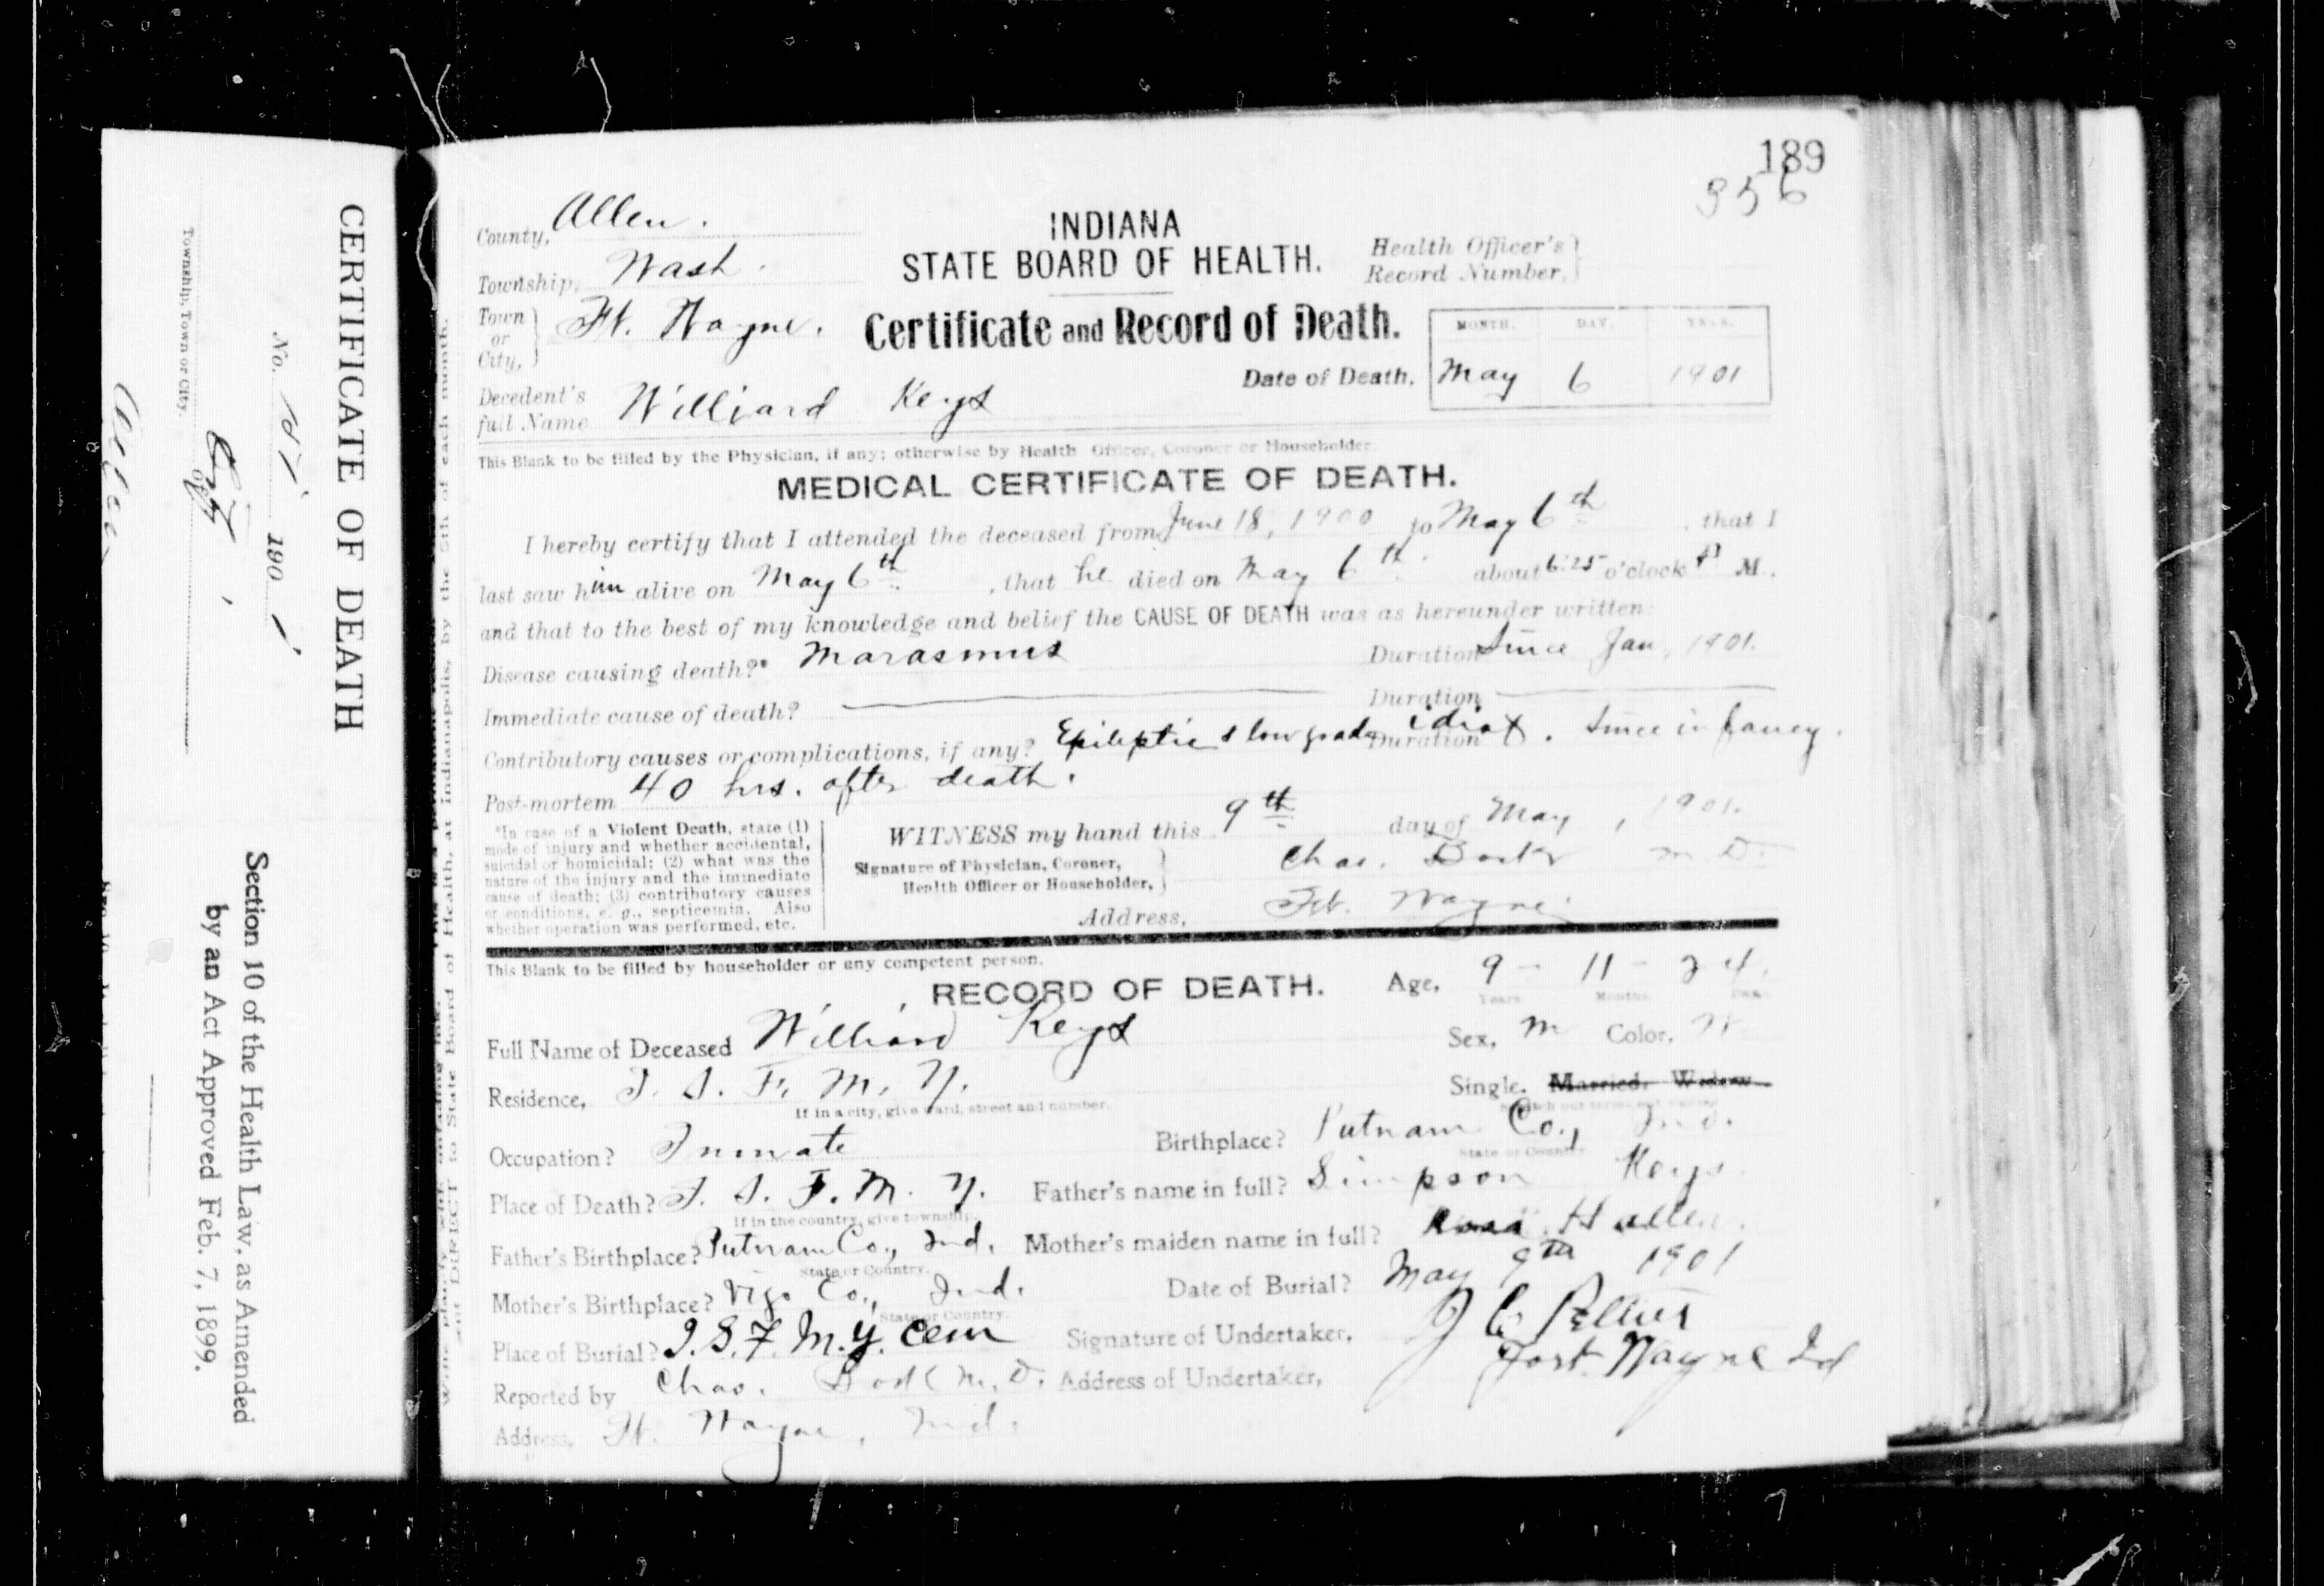 CERTIFICATE OF DEATH
No. 190 1
City
Township, Town or City.
Allen
Section 10 of the Health Law, as Amended
by an Act Approved Feb. 7, 1899.
189
356
County, Allen.
INDIANA
STATE BOARD OF HEALTH.
Health Officer's
Record Number,
Township, Wash.
Town or City, Ft. Wayne.
Certificate and Record of Death.
MONTH. DAY. YEAR.
Date of Death, May 6 1901
Decedent's full Name Williard Keys
This Blank to be filled by the Physician, if any; otherwise by Health Officer, Coroner or Householder.
MEDICAL CERTIFICATE OF DEATH.
I hereby certify that I attended the deceased from June 18, 1900 to May 6th, that I
last saw him alive on May 6th, that he died on May 6th about 6:25 o'clock M.,
and that to the best of my knowledge and belief the CAUSE OF DEATH was as hereunder written:
Disease causing death?* Marasmus Duration Since Jan, 1901.
Immediate cause of death? Duration
Contributory causes or complications, if any? Epileptic & low grade idiot. Duration Since infancy.
Post-mortem 40 hrs. after death.
*In case of a Violent Death, state (1)
mode of injury and whether accidental,
suicidal or homicidal; (2) what was the
nature of the injury and the immediate
cause of death; (3) contributory causes
or conditions, e. g., septicemia. Also
whether operation was performed, etc.
WITNESS my hand this 9th day of May, 1901.
Signature of Physician, Coroner,
Health Officer or Householder, Chas. M. D.
Address, Ft. Wayne.
This Blank to be filled by householder or any competent person.
RECORD OF DEATH.
Age, 9 - 11 - 24.
Years Months Days
Full Name of Deceased Williard Keys
Sex, M Color, W
Residence, I. S. F. M. Y.
If in a city, give ward, street and number.
Single. Married. Widow
Scratch out terms not wanted
Occupation? Inmate
Birthplace? Putnam Co., Ind.
State or Country
Place of Death? I. S. F. M. Y.
If in the country, give township.
Father's name in full? Simpson Keys
Father's Birthplace? Putnam Co., Ind.
State or Country.
Mother's maiden name in full? Hallen.
Mother's Birthplace? Vigo Co., Ind.
State or Country.
Date of Burial? May 9th 1901
Place of Burial? I. S. F. M. Y. Cem
Signature of Undertaker, J C Peltier
Reported by Chas. M. D.
Address of Undertaker, Fort Wayne Ind
Address, Ft. Wayne, Ind.